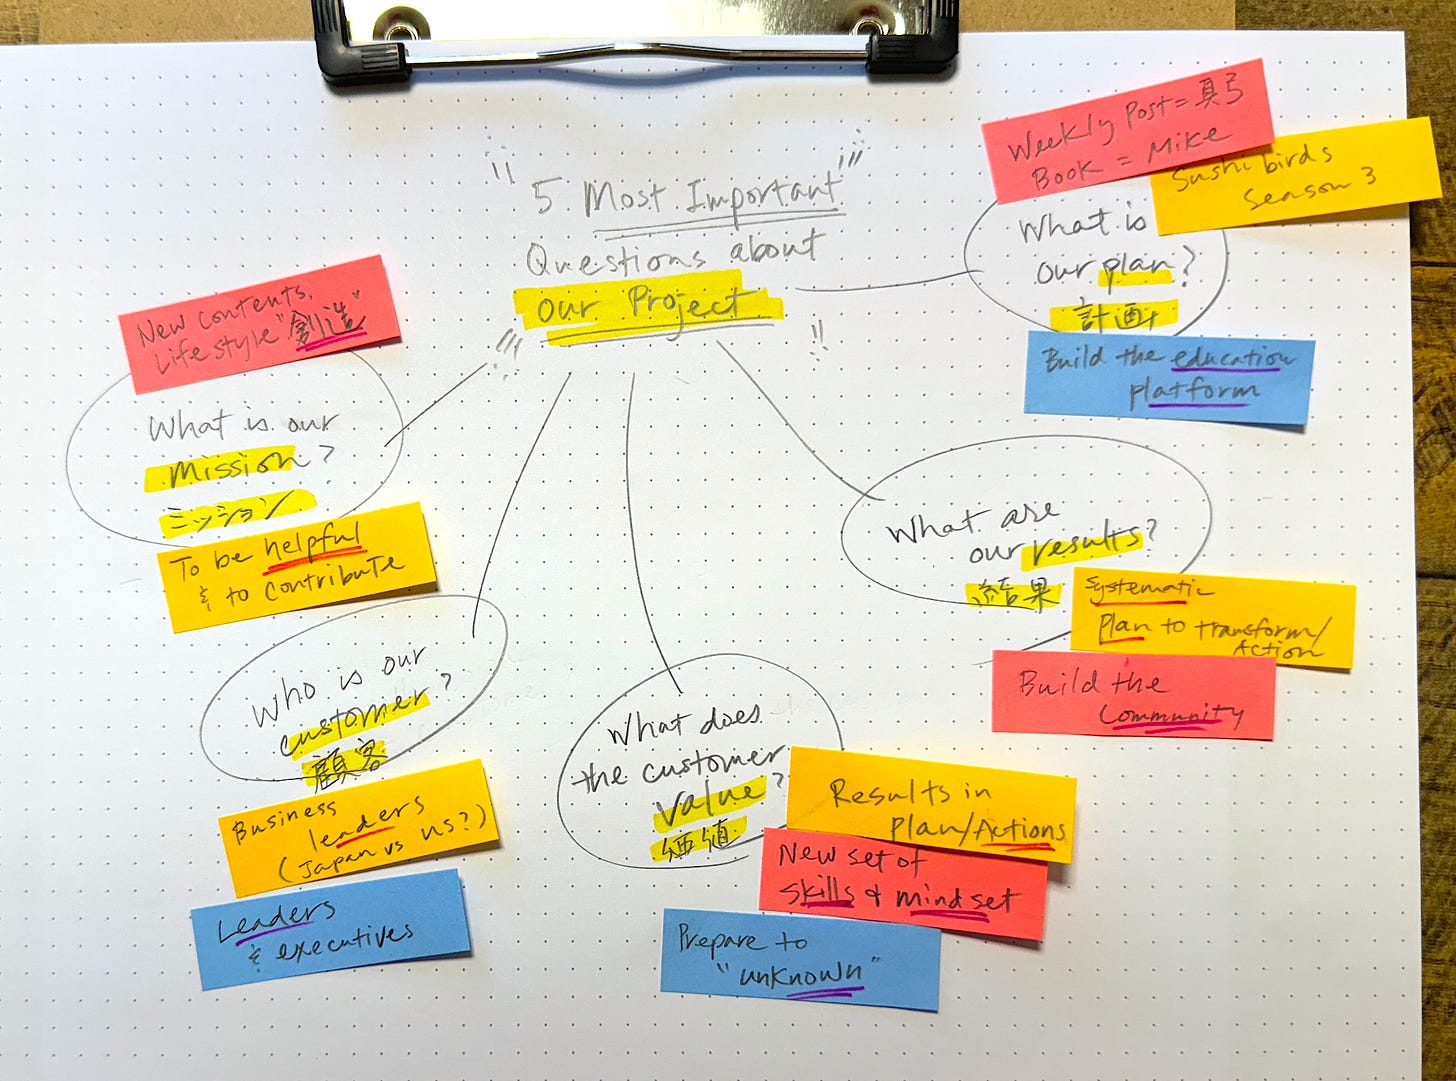 "5 Most Important"
Questions about
our Project
New contents,
Lifestyle "創造"
What is our
Mission?
ミッション
To be helpful
& to contribute
Who is our
customer?
顧客
Business
leaders
(Japan vs us?)
Leaders
& executives
What does
the customer
value?
価値
Results in
plan/Actions
New set of
skills & mindset
Prepare to
"unknown"
What are
our results?
結果
Systematic
plan to transform/
Action
Build the
community
Weekly Post = 真弓
Book = Mike
Sushi birds
Season 3
What is
our plan?
計画
Build the education
platform